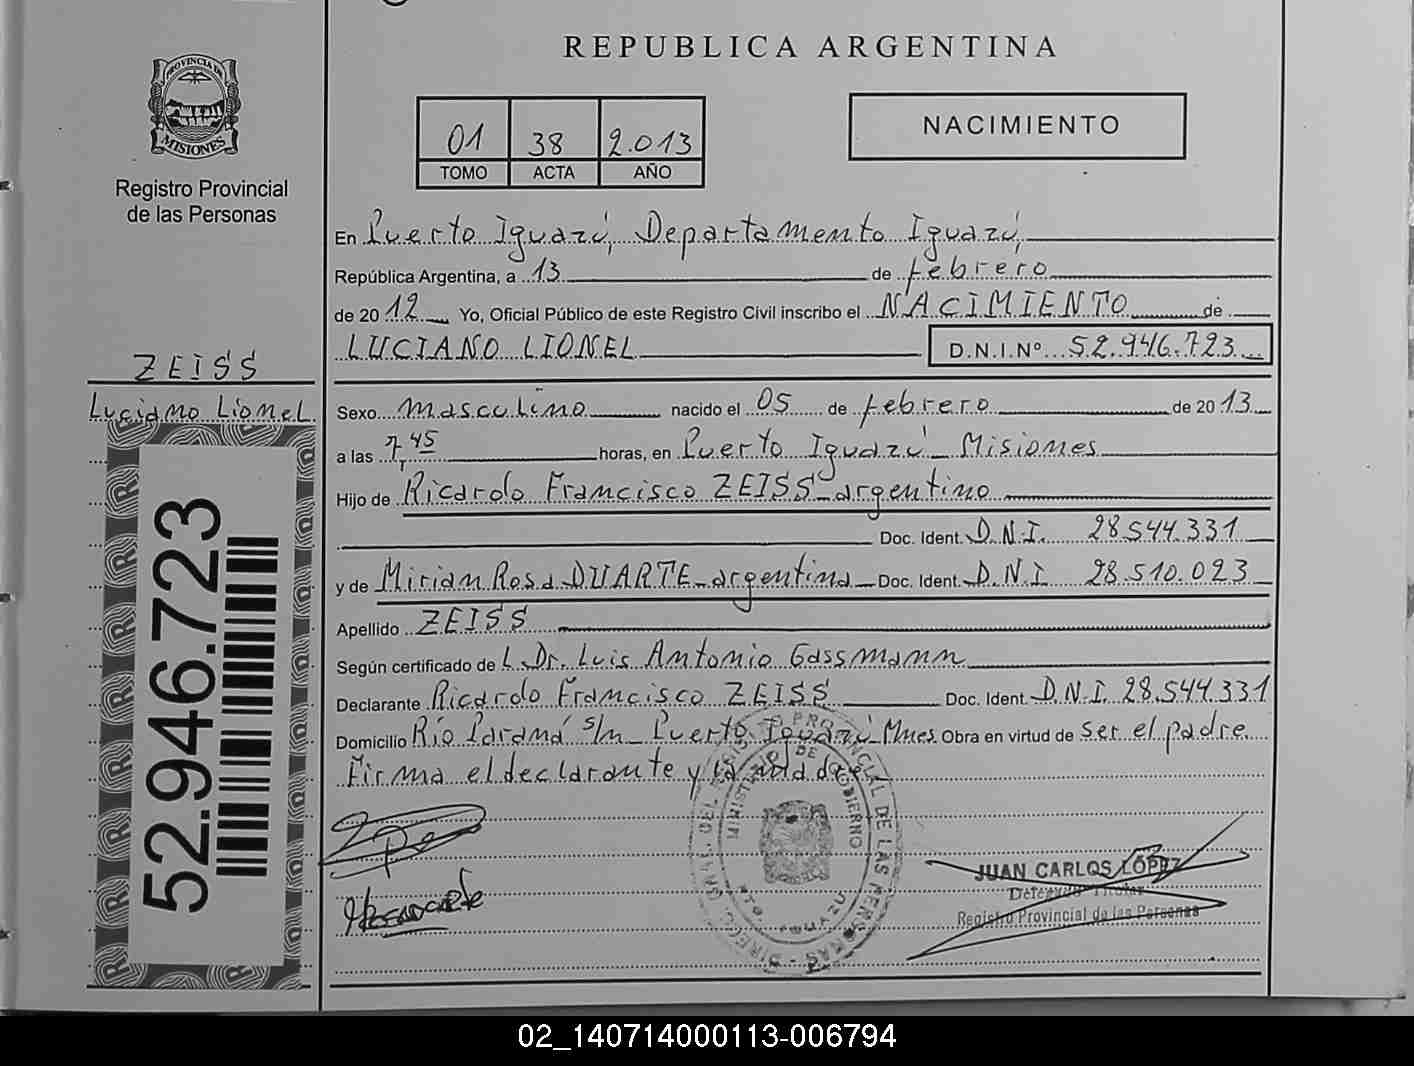 REPUBLICA ARGENTINA
PROVINCIA DE
MISIONES
Registro Provincial
de las Personas
01 38 2.013
TOMO ACTA AÑO
NACIMIENTO
En Puerto Iguazú, Departamento Iguazú,
República Argentina, a 13 de febrero
de 2012 Yo, Oficial Público de este Registro Civil inscribo el NACIMIENTO de
LUCIANO LIONEL D.N.I.Nº 52.946.723
ZEISS
Luciano Lionel
Sexo masculino nacido el 05 de febrero de 2013
a las 7,45 horas, en Puerto Iguazú - Misiones
Hijo de Ricardo Francisco ZEISS - argentino
Doc. Ident. D.N.I. 28.544.331
y de Mirian Rosa DUARTE - argentina Doc. Ident. D.N.I 28.510.023
Apellido ZEISS
Según certificado de L. Dr. Luis Antonio Gassmann
Declarante Ricardo Francisco ZEISS Doc. Ident. D.N.I. 28.544.331
Domicilio Río Paraná s/n - Puerto Iguazú Mnes Obra en virtud de ser el padre
Firma el declarante y la madre
52.946.723
MINISTERIO DE GOBIERNO
PROVINCIAL DE LAS PERSONAS
PTO. IGUAZU
JUAN CARLOS LÓPEZ
Delegado Titular
Registro Provincial de las Personas
02_140714000113-006794